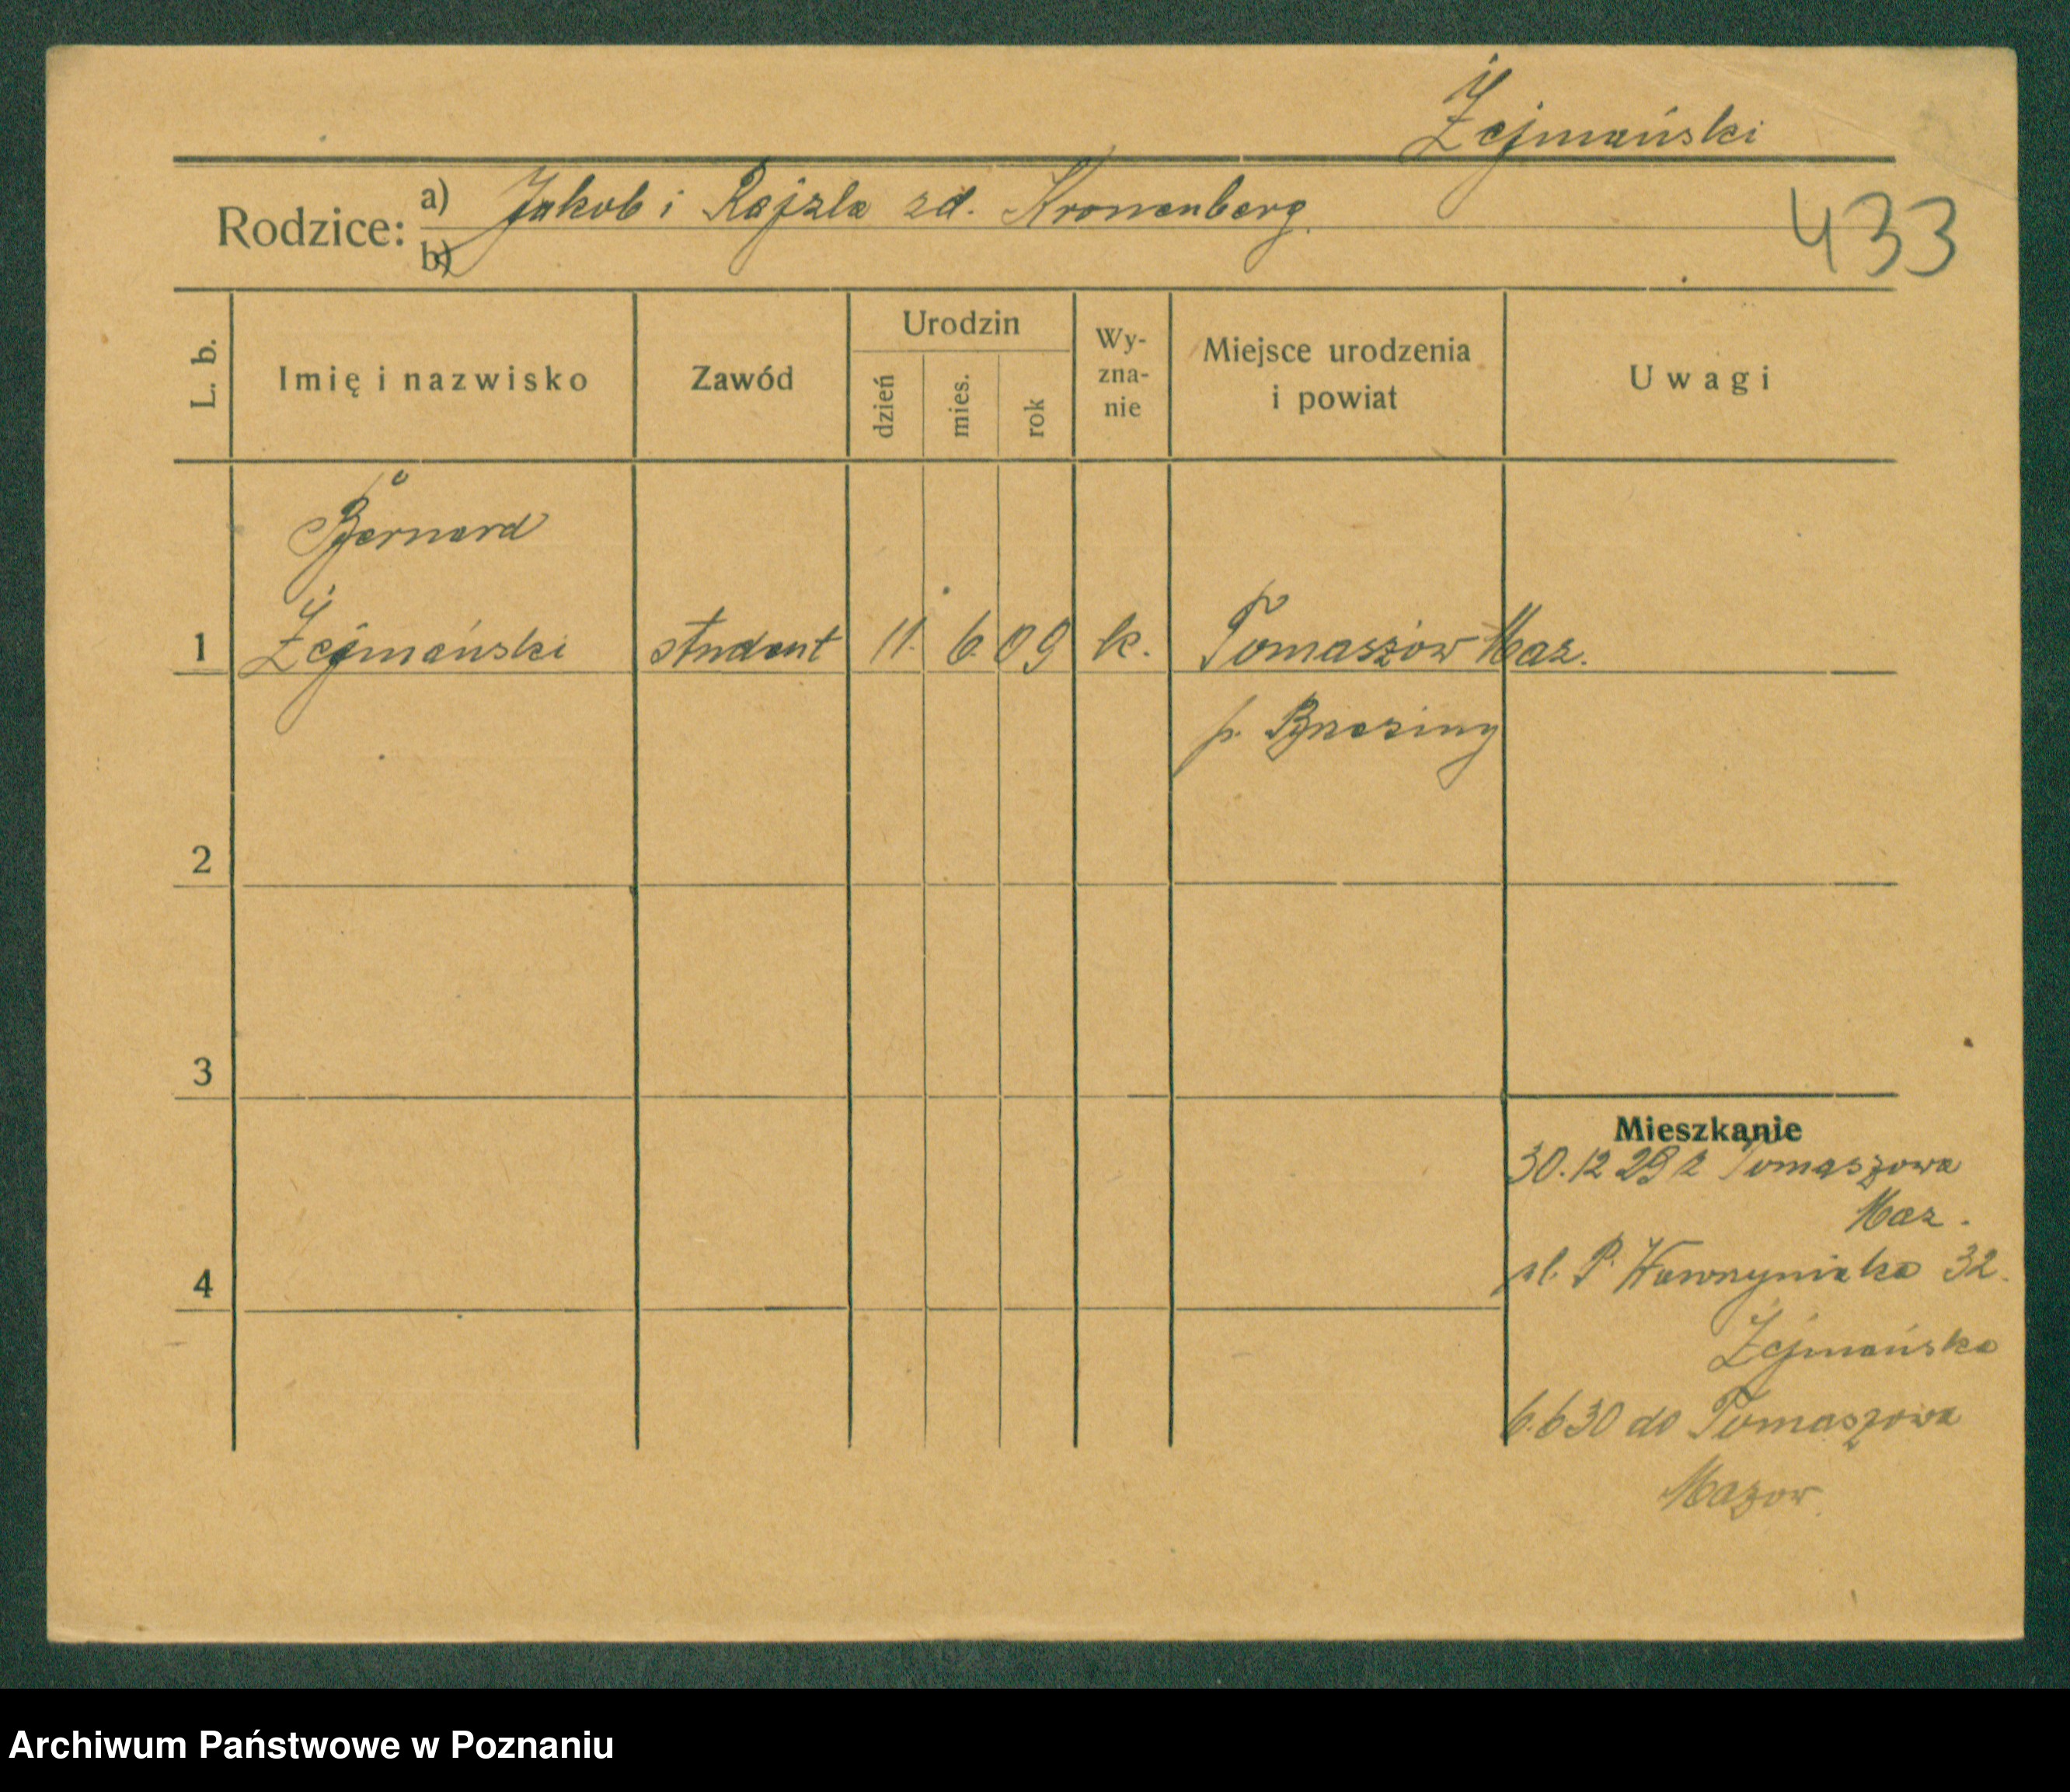 Żejmański
Rodzice: a) Jakob i Rajzla zd. Kronenberg.
b)
433
L. b.
Imię i nazwisko
Zawód
Urodzin
dzień
mies.
rok
Wy-
zna-
nie
Miejsce urodzenia
i powiat
Uwagi
Bernard
1 Żejmański student 11. 6. 09 k. Tomaszów Maz.
p. Brzeziny
2
3
Mieszkanie
30.12 29 z Tomaszowa
Maz.
pl. P. Wawrzyniaka 32.
4
Żejmańska
6.6 30 do Tomaszowa
Mazow.
Archiwum Państwowe w Poznaniu